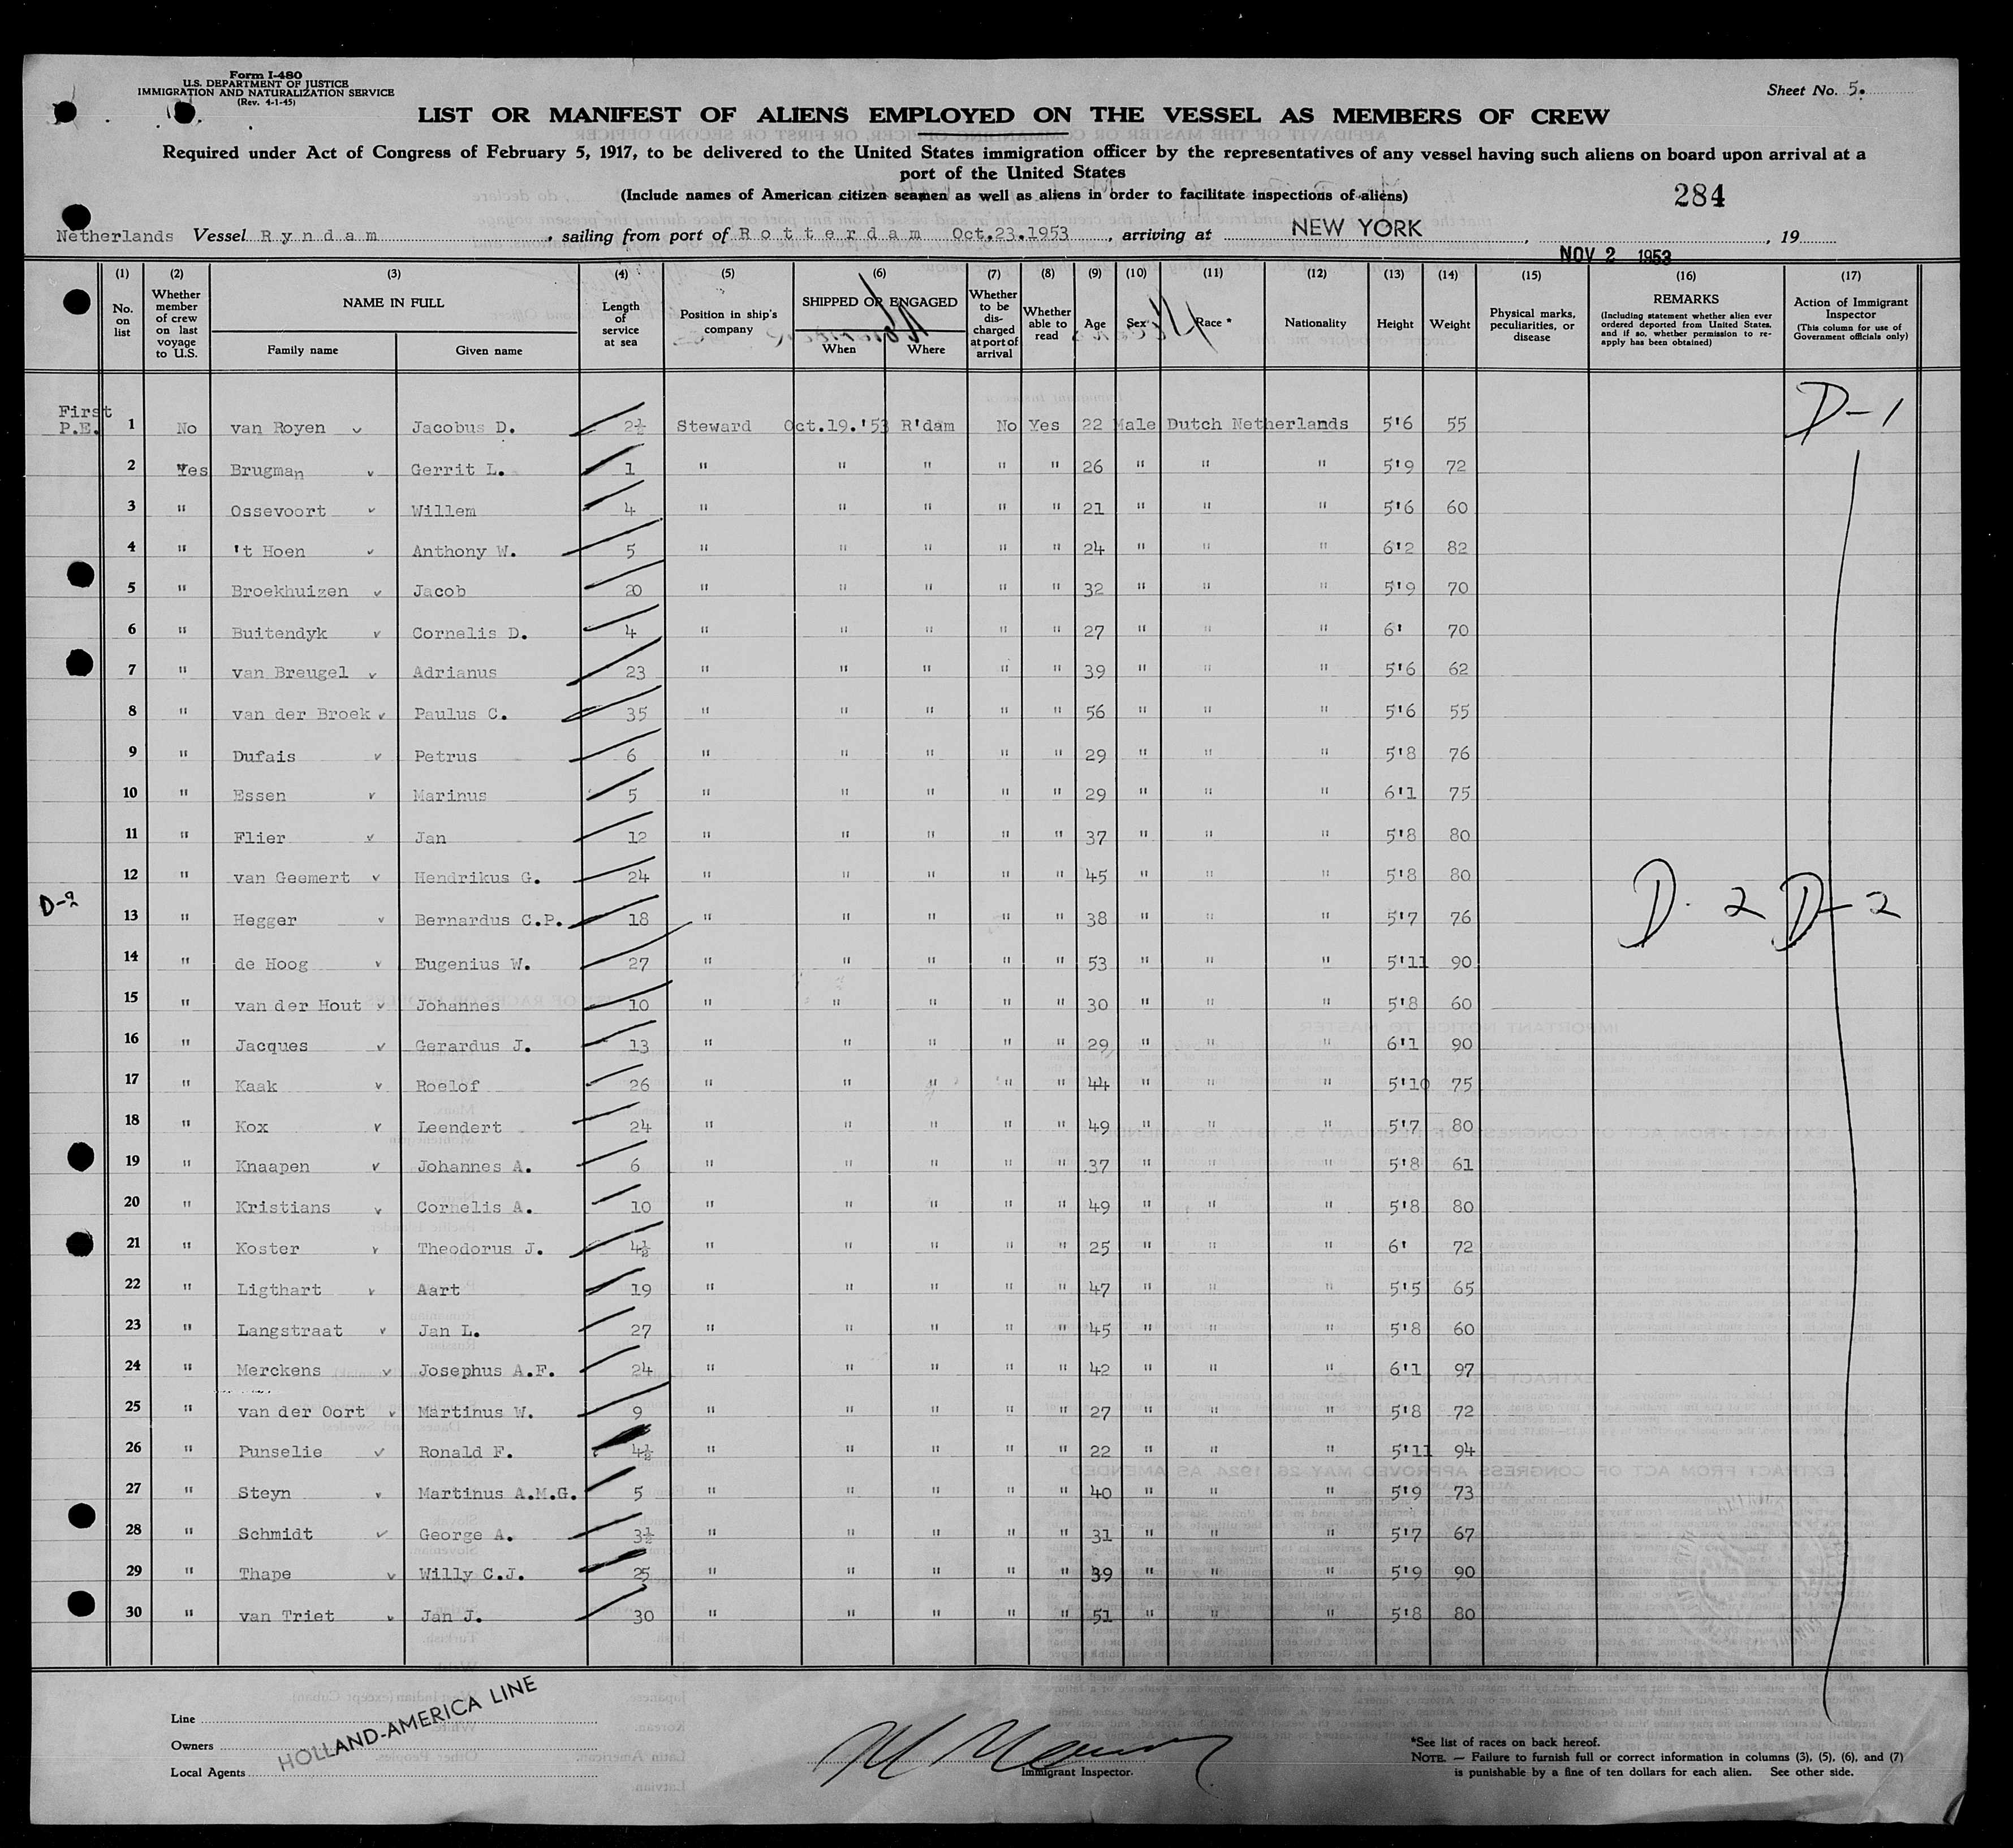 Form I-480
U.S. DEPARTMENT OF JUSTICE
IMMIGRATION AND NATURALIZATION SERVICE
(Rev. 4-1-45)
Sheet No. 5.
LIST OR MANIFEST OF ALIENS EMPLOYED ON THE VESSEL AS MEMBERS OF CREW
Required under Act of Congress of February 5, 1917, to be delivered to the United States immigration officer by the representatives of any vessel having such aliens on board upon arrival at a
port of the United States
(Include names of American citizen seamen as well as aliens in order to facilitate inspections of aliens)
284
Netherlands Vessel Ryndam, sailing from port of Rotterdam Oct.23.1953, arriving at NEW YORK, , 19
NOV 2 1953
(1) (2) (3) (4) (5) (6) (7) (8) (9) (10) (11) (12) (13) (14) (15) (16) (17)
No. on list
Whether member of crew on last voyage to U.S.
NAME IN FULL
Family name
Given name
Length of service at sea
Position in ship's company
SHIPPED OR ENGAGED
When
Where
Whether to be discharged at port of arrival
Whether able to read
Age
Sex
Race *
Nationality
Height
Weight
Physical marks, peculiarities, or disease
REMARKS
(Including statement whether alien ever ordered deported from United States, and if so, whether permission to reapply has been obtained)
Action of Immigrant Inspector
(This column for use of Government officials only)
D-1
First
P.E. 1 No van Royen v Jacobus D. 2½ Steward Oct.19.'53 R'dam No Yes 22 Male Dutch Netherlands 5'6 55
2 Yes Brugman v Gerrit L. 1 " " " " " 26 " " " 5'9 72
3 " Ossevoort v Willem 4 " " " " " 21 " " " 5'6 60
4 " 't Hoen v Anthony W. 5 " " " " " 24 " " " 6'2 82
5 " Broekhuizen v Jacob 20 " " " " " 32 " " " 5'9 70
6 " Buitendyk v Cornelis D. 4 " " " " " 27 " " " 6' 70
7 " van Breugel v Adrianus 23 " " " " " 39 " " " 5'6 62
8 " van der Broek v Paulus C. 35 " " " " " 56 " " " 5'6 55
9 " Dufais v Petrus 6 " " " " " 29 " " " 5'8 76
10 " Essen v Marinus 5 " " " " " 29 " " " 6'1 75
11 " Flier v Jan 12 " " " " " 37 " " " 5'8 80
12 " van Geemert v Hendrikus G. 24 " " " " " 45 " " " 5'8 80
D-2 13 " Hegger v Bernardus C.P. 18 " " " " " 38 " " " 5'7 76 D-2 D-2
14 " de Hoog v Eugenius W. 27 " " " " " 53 " " " 5'11 90
15 " van der Hout v Johannes 10 " " " " " 30 " " " 5'8 60
16 " Jacques v Gerardus J. 13 " " " " " 29 " " " 6'1 90
17 " Kaak v Roelof 26 " " " " " 44 " " " 5'10 75
18 " Kox v Leendert 24 " " " " " 49 " " " 5'7 80
19 " Knaapen v Johannes A. 6 " " " " " 37 " " " 5'8 61
20 " Kristians v Cornelis A. 10 " " " " " 49 " " " 5'8 80
21 " Koster v Theodorus J. 4½ " " " " " 25 " " " 6' 72
22 " Ligthart v Aart 19 " " " " " 47 " " " 5'5 65
23 " Langstraat v Jan L. 27 " " " " " 45 " " " 5'8 60
24 " Merckens v Josephus A.F. 24 " " " " " 42 " " " 6'1 97
25 " van der Oort v Martinus W. 9 " " " " " 27 " " " 5'8 72
26 " Punselie v Ronald F. 4½ " " " " " 22 " " " 5'11 94
27 " Steyn v Martinus A.M.G. 5 " " " " " 40 " " " 5'9 73
28 " Schmidt v George A. 3½ " " " " " 31 " " " 5'7 67
29 " Thape v Willy C.J. 25 " " " " " 39 " " " 5'9 90
30 " van Triet v Jan J. 30 " " " " " 51 " " " 5'8 80
Line
Owners
Local Agents
HOLLAND-AMERICA LINE
Immigrant Inspector.
*See list of races on back hereof.
NOTE. — Failure to furnish full or correct information in columns (3), (5), (6), and (7)
is punishable by a fine of ten dollars for each alien. See other side.